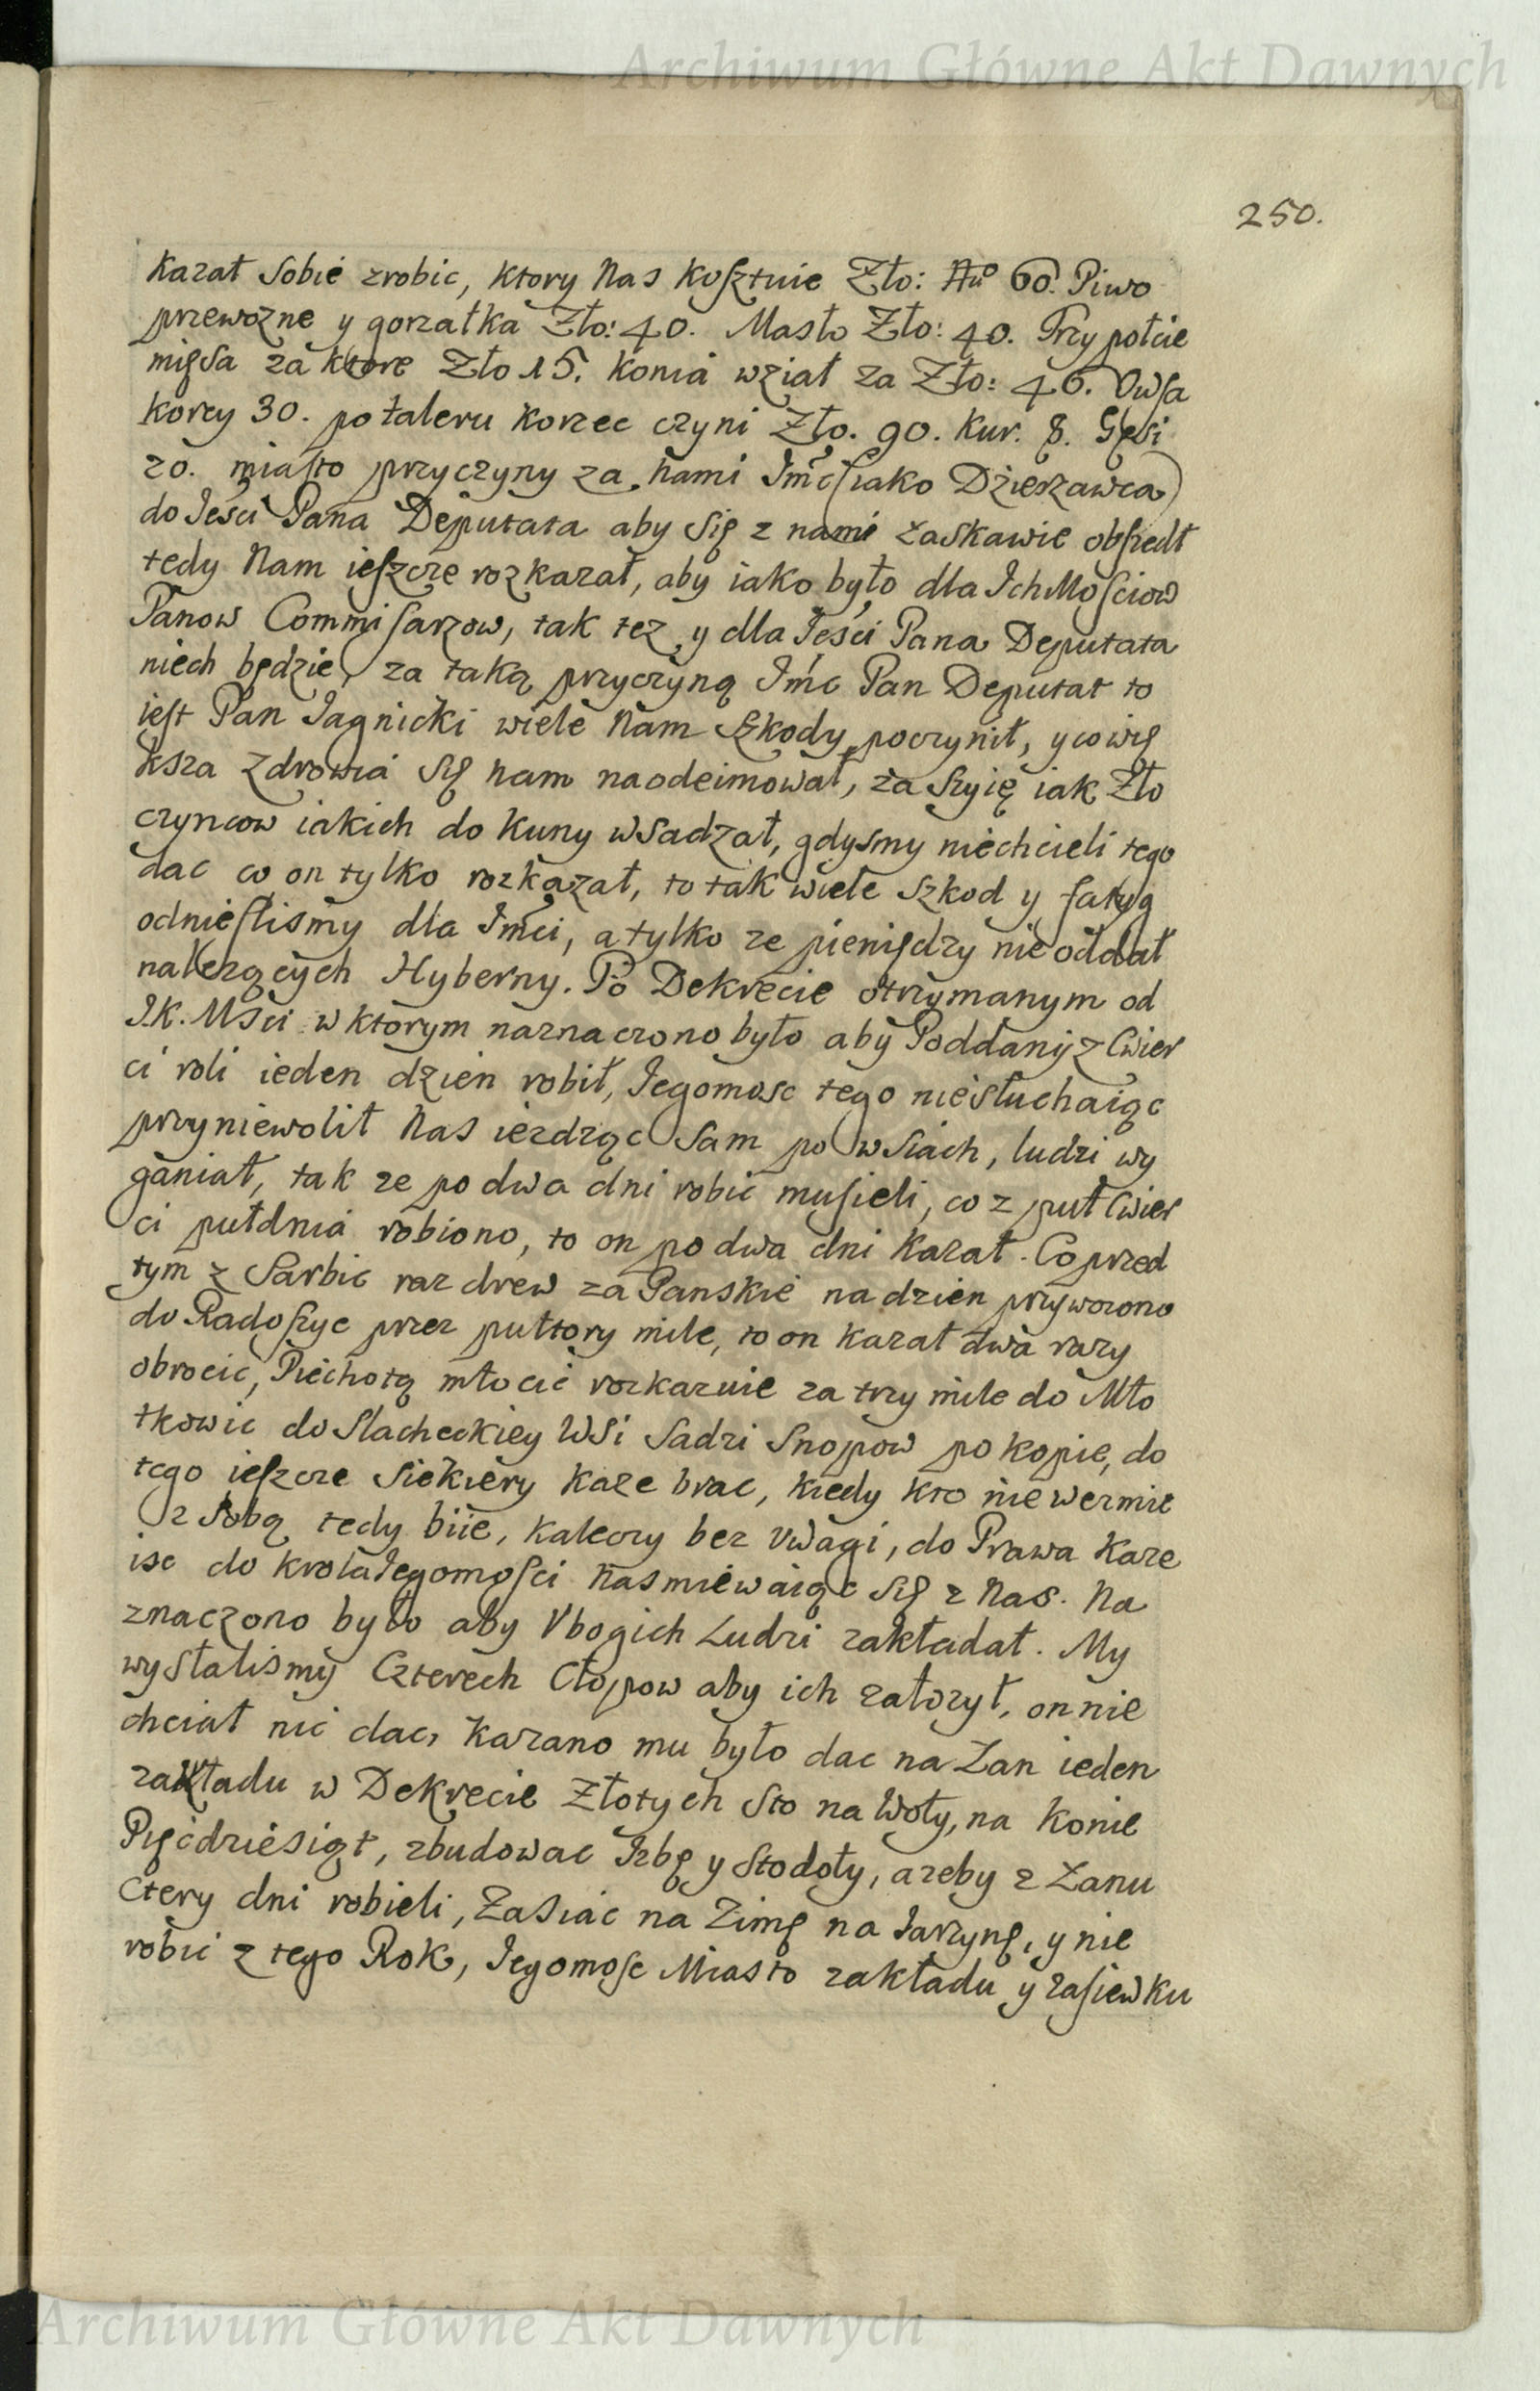 Archiwum Główne Akt Dawnych
250.
Kazał Sobie zrobic, ktory Nas kosztuie Zło: Nu͞o 60. Piwo
przewozne y gorzałka Zło: 40. Masło Zło: 40. Trzy połcie
mięsa za ktore Zło 15. konia wziął za Zło: 46. Owsa
korcy 30. po taleru korzec czyni Zło. 90. Kur. 8. Gęsi
20. miasto przyczyny za nami Jmć (iako Dzierzawca)
do Jeści Pana Deputata aby się z nami łaskawie obszedł
tedy Nam ieszcze rozkazał, aby iako było dla Ich Mościow
Panow Commisarzow, tak tez y dla Jeści Pana Deputata
niech będzie, za taką przyczyną Jmć Pan Deputat to
iest Pan Jagnicki wiele Nam Szkody poczynił, y co wię
ksza Zdrowia się nam naodeimował, za szyię iak Zło
czyncow iakich do kuny wsadzał, gdysmy niechcieli tego
dac co on tylko rozkazał, to tak wiele szkod y fatyg
odnieslismy dla Jmci, a tylko ze pieniędzy nie oddał
nalezących Hyberny. Po Dekrecie otrzymanym od
J.K. Msci w ktorym naznaczono było aby Poddany z Cwier
ci roli ieden dzien robił, Jegomosc tego niesłuchaiąc
przyniewolił Nas iezdząc Sam po wsiach, ludzi wy
ganiał, tak ze po dwa dni robic musieli, co z puł Cwier
ci pułdnia robiono, to on po dwa dni kazał. Co przed
tym z Sarbic raz drew za Panskie na dzien przywozono
do Radoszyc przez pułtory mile, to on kazał dwa razy
obrocic, Piechotą młocic rozkazuie za trzy mile do Mło
tkowic do Slacheckiey Wsi Sadzi Snopow po kopie, do
tego ieszcze Siekiery kaze brac, kiedy kto nie wezmie
z sobą tedy biie, kaleczy bez Uwagi, do Prawa kaze
isc do krola Jegomosci nasmiewaiąc się z Nas. Na
znaczono było aby Vbogich Ludzi zakładał. My
wysłalismy Czterech Cłopow aby ich załozył, on nie
chciał nic dac, kazano mu było dac na Łan ieden
zakładu w Dekrecie Złotych Sto na Woły, na konie
Pięcdziesiąt, zbudowac Izbę y Stodoły, a zeby z Łanu
Ctery dni robieli, Zasiac na Zimę na Jarzynę, y nie
robic z tego Rok, Jegomosc Miasto zakładu y zasiewku
Archiwum Główne Akt Dawnych